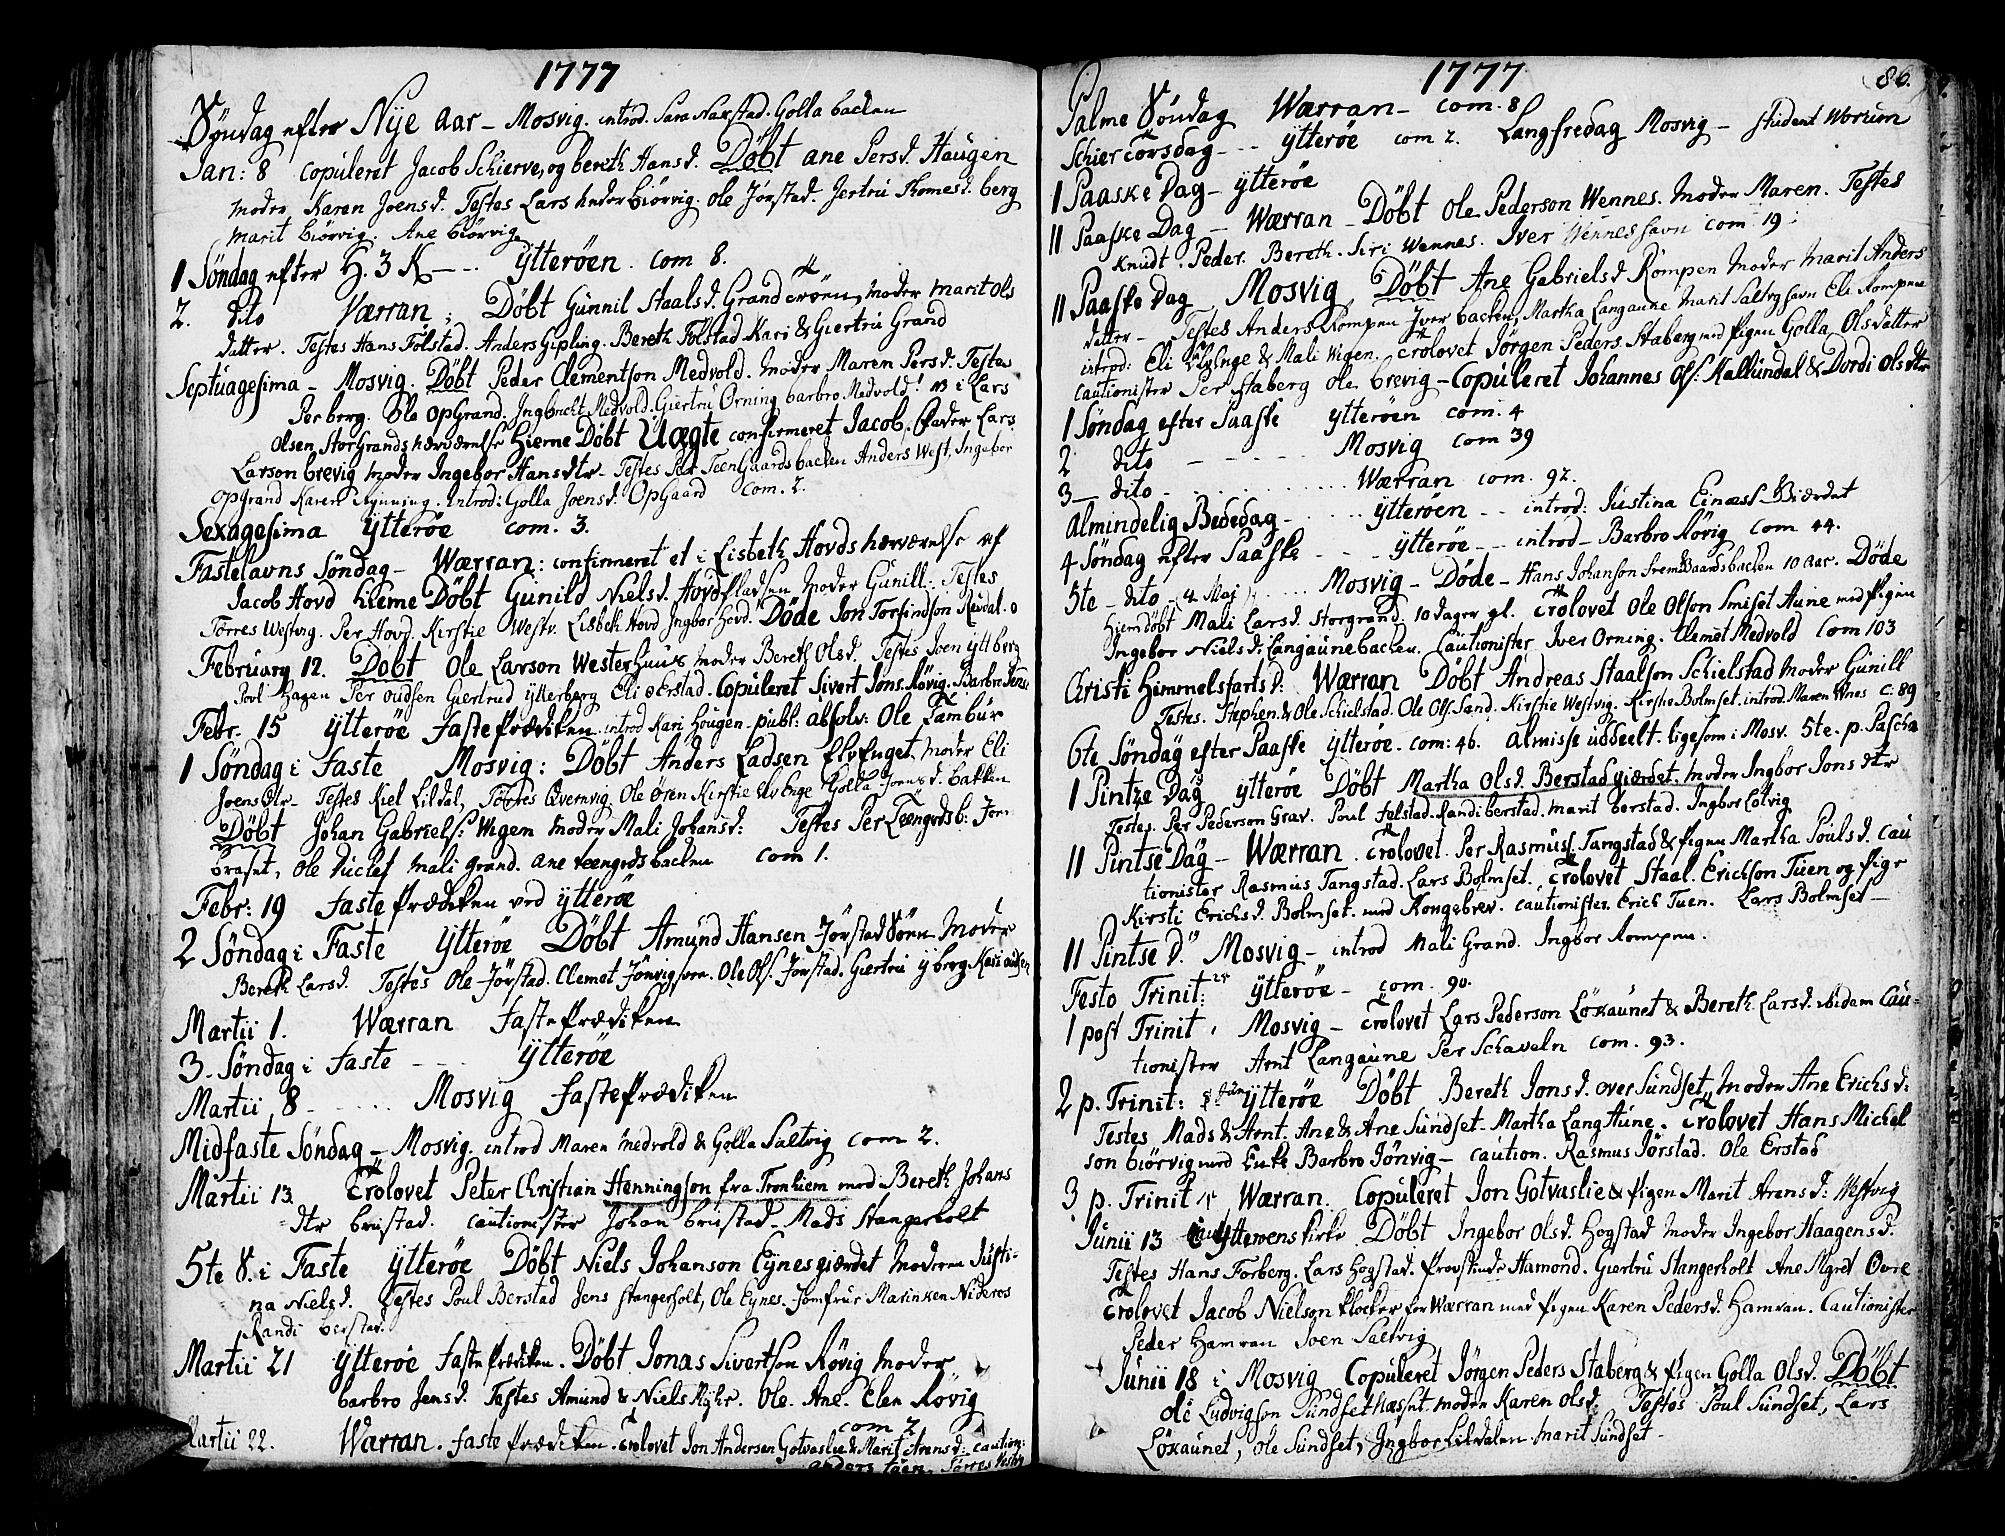 1777
Søndag efter Nye Aar - Mosvig. introd. Sara Naxstad. Golla backen
Jan: 8 copuleret Jacob Schierve, og bereth Hansd. Døbt ane Persd. Haugen
moder Karen Joensd. Testes Lars biörvig. Ole Jörstad. Jertru Thomesd. berg
Marit Biörvig. Ane Biörvig
1 Søndag efter H. 3 K --- Ytterøen. com 8.
2. dito Værran; Døbt Gunnil Staalsd. Grand, moder Marit Ols
datter. Testes Hans Følstad. Anders Gipling. Bereth Følstad Kari & Giertru Grand
Septuagesima - Mosvig. Døbt Peder Clementson Medvold. Moder Maren Persd. Testes
Per berg. Ole OpGrand. Ingbricht Medvold. Giertru Orning barbro Medvold! i Lars
Olsen StorGrands nærværelse Hieme Døbt Uægte confirmeret Jacob. Fader Lars
Larson brevig moder Ingebor Hansdtr - Testes Per TeenGaardsbacken Anders West, Ingebor
OpGrand Karen Rynning. Introd: Golla Joensd: OpGaard com. 2.
Sexagesima Ytterøe com. 3.
Fastelavns Søndag - Wærran: confirmeret et i Lisbeth Hovds nærværelse af
Jacob Hovd hieme Døbt Gunild Nielsd. Hovdpladsen moder Gunill: Testes
Törres Westvig. Per Hovd. Kirstie Westv. Lisbeth Hovd Ingbor Hovd. Døde Jon Torfindson Reudal. 0
February 12. Døbt Ole Larson Westerhuus moder Bereth Olsd. Testes Joen ytterberg
Povl Hagen Per Oudsen Giertrud ytterberg Eli Ørstad. Copuleret Sivert Jons. Røvig. Barbro Jens
Febr. 15 Ytterøe Fasteprædiken. introd Kari Hougen. publ: absolv: Ole Tambur
1 Søndag i Faste Mosvig: Døbt Anders Ladsen Elvenget, moder Eli
Joensdtr - Testes Kiel Lildal, Törres Qvernvig, Ole Ören Kirstie Elvenge Golla Joensd. bakken
Døbt Johan Gabriels: Wigen moder Mali Johansd: Testes Per Teengrdsb: Jon
braset, Ole Duclet mali grand. ane teengrdsbacken com 1.
Febr: 19 Fasteprædiken ved Ytterøe
2 Søndag i Faste Ytterøe Døbt Amund Hansen Jörstad Moder
Bereth Larsd. Testes Ole Jörstad. Clemet Jönvig. Ole Ols. Jörstad. Giertru yberg.
Martii 1. Wærran Fasteprædiken
3. Søndag i Faste --- Ytterøe
Martii 8 - Mosvig Fasteprædiken
Midfaste Søndag - Mosvig. introd Maren Medvold & Golla Saltvig com 2.
Martii 13 Trolovet Peter Christian Henningson fra Tronhiem med Bereth Johans
dtr brustad. cautionister Johan brustad - Mads Stangerholt
5te S. i Faste Ytterøe Døbt Niels Johanson Eynesgiærdet Moderen Justi-
na Nielsd. Testes Poul Berstad Jens Stangerholt, Ole Eynes. Jomfrue Marinken Nideros
Randi berstad.
Martii 21 Ytterøe Fasteprædiken. Døbt Jonas Sivertson Røvig Moder
barbro Jensd. Testes Amund & Niels Ryhr. Ole. Ane. Elen Røvig
com 2
Martii 22. Wærran. Fasteprædiken. Trolovet Jon Andersen Gotvaslie & Marit Arensd: caution:
Törres Vestvig
1777 86.
Palme Søndag Wærran - com. 8
Schiertorsdag --- Ytterøe com 2. Langfredag Mosvig - student Worum
1 Paaske Dag - Ytterøe
11 Paaske Dag - Wærran - Døbt Ole Pederson Wennes. Moder Maren. Testes
Knudt. Peder. Bereth. Siri Wennes. Iver Wenneshavn com 19.
11 Paaske Dag Mosvig Døbt Ane Gabrielsd Rompen Moder Marit Anders
datter - Testes Anders Rompen Iver backen, Martha Langaune Marit Saltvghavn Eli Rompen
introd: Eli Elvenge & Mali Wigen. Trolovet Jørgen Peders Staberg med Pigen Golla Olsdatter
cautionister Per Staberg Ole brevig - Copuleret Johannes Ols. Kallundal & Dordi Olsdtr
1 Søndag efter Paaske Ytterøen com: 4
2 dito - Mosvig com 39
3 - dito - Wærran com. 92.
Almindelig Bededag - Ytterøen -- introd: Justina Einæss-Giærdet
4 Søndag efter Paaske --- Ytterøe -- introd - Barbro Røvig com 44.
5te - dito - 4 Maj Mosvig - Døde - Hans Johanson 10 Aar. Døde
Hiemdøbt Mali Larsd. Storgrand. 10 dager gl. Trolovet Ole Olson Smiset Aune med Pigen
Ingebor Nielsd: Langaunebacken. Cautionister Iver Orning. Clemet Medvold Com 103
Christi Himmelsfartsd: Wærran Døbt Andreas Staalson Schielstad Moder Gunill
Testes. Stephen & Ole Schielstad. Ole Ols. Sand. Kirstie Westvig. Kirstie Bolmset. introd. Maren Wnes C: 89
6te Søndag efter Paaske Ytterøe. com: 46. Almisse uddeelt. ligesom i Mosv. 5te. p. Pascha
1 Pintze Dag Ytterøe Døbt Martha Olsd. Berstadgiærdet. moder Ingbor Jonsdtr
Testes. Per Pederson Grav. Poul Felstad. Randi berstad. marit berstad. Ingbor Løvig
11 Pintse Dag - Wærran. Trolovet. Per Rasmuss. Tangstad & Pigen Martha Poulsd. Cau
tionister Rasmus Tangstad. Lars Bolmset. Trolovet Staal. Erichson Tuen og Pige
Kirsti Erichsd. Bolmset. med Kongebrev. cautionister. Erich Tuen. Lars Bolmset -
11 Pintse D. Mosvig - introd Mali Grand. Ingbor Rompen.
Festo Trinit: Ytterøe - com. 90.
1 post Trinit. Mosvig - Trolovet Lars Pederson Löxaunet & Bereth Larsd. ibidem Cau-
tionister Arnt Langaune Per Schaveln com. 93.
2 p. Trinit: 8 Jun Ytterøe Døbt Bereth Jonsd. over Sundset, Moder Ane Erichsd:
Testes Mads & Arnt. Ane & Ane Sundset. Martha LangAune. Trolovet Hans Michel
son biörvig med Enke Barbro Jönvig - caution. Rasmus Jörstad. Ole Erstad
3 p. Trinit Wærran. Copuleret Jon Gotvaslie & Pigen Marit Arensd: Westvig
Junii 13 Ytterøenskirke Døbt Ingebor Olsd. Hogstad Moder Ingebor Haagensd.
Testes Hans Forberg. Lars Hogstad. Provstinde Hamond. Giertru Stangerholt Ane Mgret Ovre
Trolovet Jacob Nielson Klocker for Wærran med Pigen Karen Pedersd. Hamran. Cautionister
Peder Hamran Joen Saltvig
Junii 18 i Mosvig Copuleret Jørgen Peders Staberg & Pigen Golla Olsd. Døbt
Ole Ludvigson Sundset Næsset. moder Karen Olsd. Testes Poul Sundset, Lars
Löxaunet, Ole Sundset, Ingbor Lildalen. Marit Sundset -